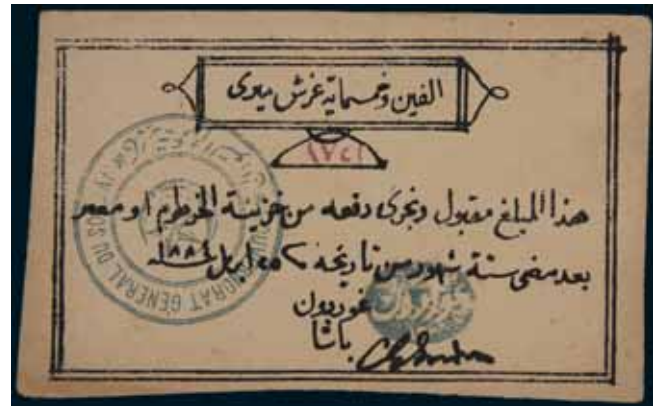 الفين وخمسماية غرش ميرى
١٧٤١
هذا المبلغ مقبول ونجرى دفعه من خزينة الخرطوم او مصر
بعد مضى ستة شهور من تاريخه ٢٥ ابريل ١٨٨٤
غوردون
باشا
GOUVERNORAT GENERAL DU